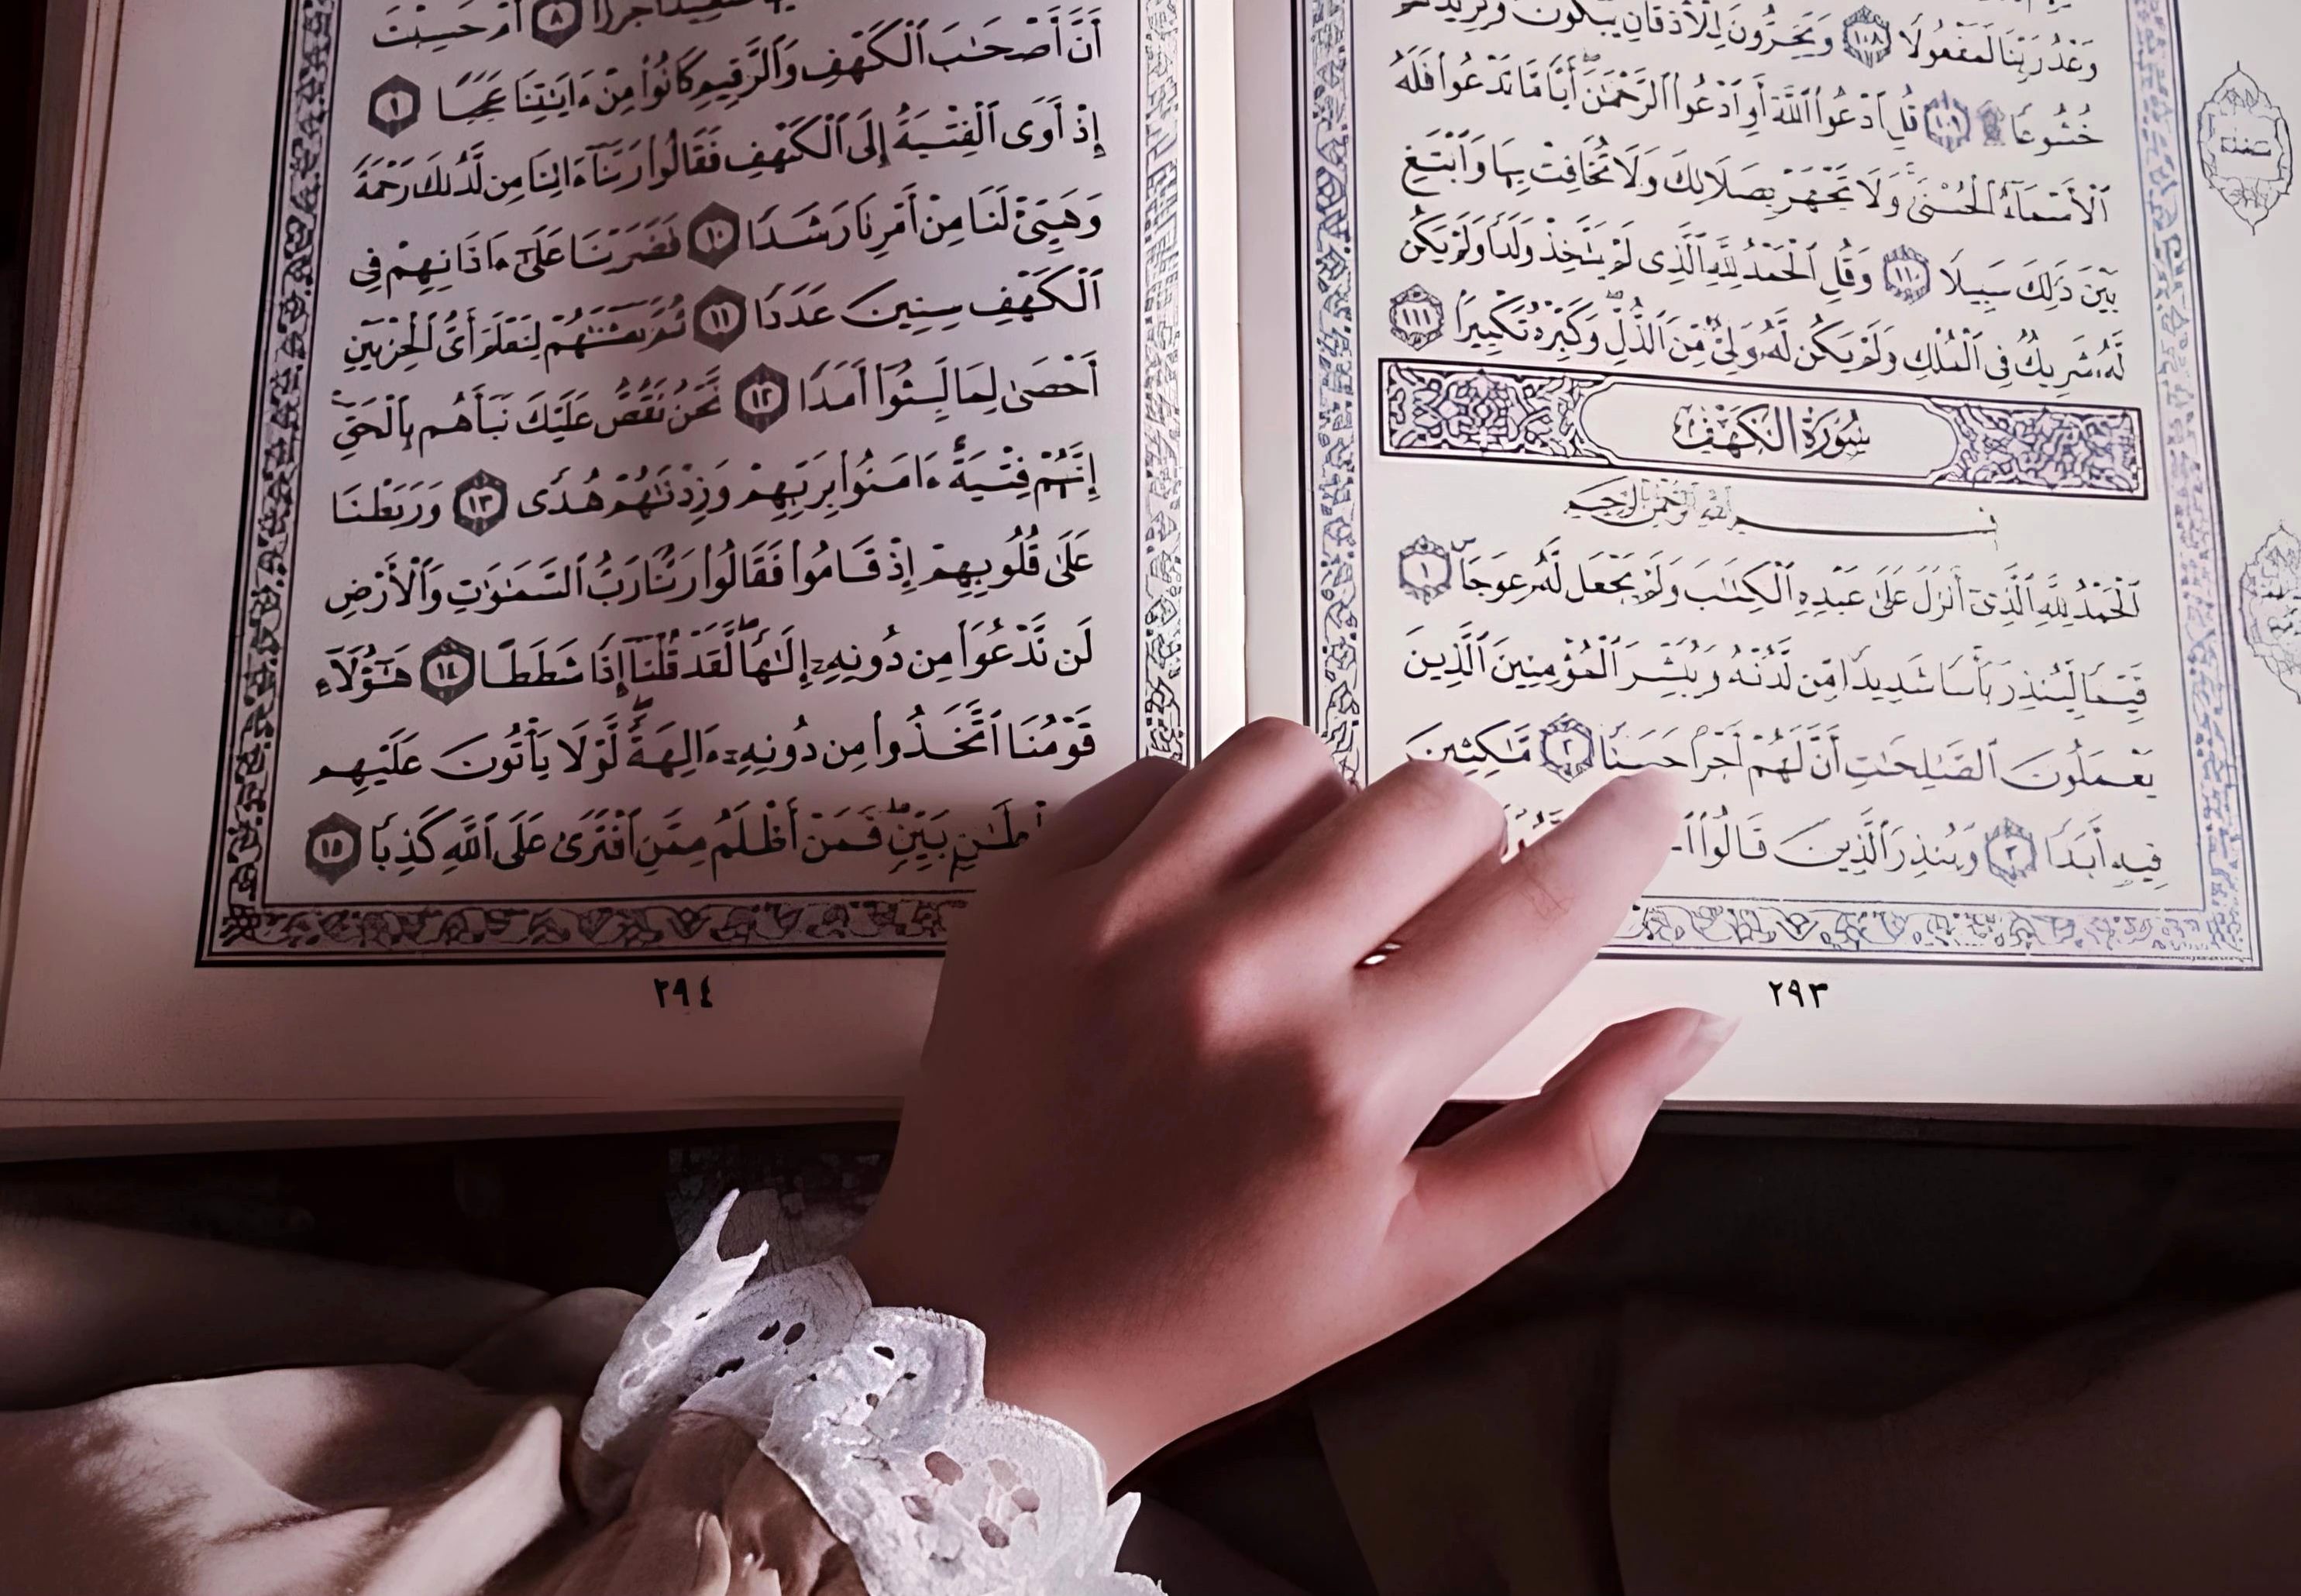 وَعْدُ رَبِّنَا لَمَفْعُولًا ١٠٨ وَيَخِرُّونَ لِلْأَذْقَانِ يَبْكُونَ وَيَزِيدُهُمْ
خُشُوعًا ۩ ١٠٩ قُلِ ٱدْعُوا۟ ٱللَّهَ أَوِ ٱدْعُوا۟ ٱلرَّحْمَٰنَ ۖ أَيًّا مَّا تَدْعُوا۟ فَلَهُ
ٱلْأَسْمَآءُ ٱلْحُسْنَىٰ ۚ وَلَا تَجْهَرْ بِصَلَاتِكَ وَلَا تُخَافِتْ بِهَا وَٱبْتَغِ
بَيْنَ ذَٰلِكَ سَبِيلًا ١١٠ وَقُلِ ٱلْحَمْدُ لِلَّهِ ٱلَّذِى لَمْ يَتَّخِذْ وَلَدًا وَلَمْ يَكُن
لَّهُۥ شَرِيكٌ فِى ٱلْمُلْكِ وَلَمْ يَكُن لَّهُۥ وَلِىٌّ مِّنَ ٱلذُّلِّ ۖ وَكَبِّرْهُ تَكْبِيرًۢا ١١١
سُورَةُ الكَهْفِ
بِسْمِ ٱللَّهِ ٱلرَّحْمَٰنِ ٱلرَّحِيمِ
ٱلْحَمْدُ لِلَّهِ ٱلَّذِىٓ أَنزَلَ عَلَىٰ عَبْدِهِ ٱلْكِتَٰبَ وَلَمْ يَجْعَل لَّهُۥ عِوَجَا ۜ ١
قَيِّمًا لِّيُنذِرَ بَأْسًا شَدِيدًا مِّن لَّدُنْهُ وَيُبَشِّرَ ٱلْمُؤْمِنِينَ ٱلَّذِينَ
يَعْمَلُونَ ٱلصَّٰلِحَٰتِ أَنَّ لَهُمْ أَجْرًا حَسَنًا ٢ مَّٰكِثِينَ
فِيهِ أَبَدًا ٣ وَيُنذِرَ ٱلَّذِينَ قَالُوا۟
٢٩٣
جُرُزًا ٨ أَمْ حَسِبْتَ
أَنَّ أَصْحَٰبَ ٱلْكَهْفِ وَٱلرَّقِيمِ كَانُوا۟ مِنْ ءَايَٰتِنَا عَجَبًا ٩
إِذْ أَوَى ٱلْفِتْيَةُ إِلَى ٱلْكَهْفِ فَقَالُوا۟ رَبَّنَآ ءَاتِنَا مِن لَّدُنكَ رَحْمَةً
وَهَيِّئْ لَنَا مِنْ أَمْرِنَا رَشَدًا ١٠ فَضَرَبْنَا عَلَىٰٓ ءَاذَانِهِمْ فِى
ٱلْكَهْفِ سِنِينَ عَدَدًا ١١ ثُمَّ بَعَثْنَٰهُمْ لِنَعْلَمَ أَىُّ ٱلْحِزْبَيْنِ
أَحْصَىٰ لِمَا لَبِثُوٓا۟ أَمَدًا ١٢ نَّحْنُ نَقُصُّ عَلَيْكَ نَبَأَهُم بِٱلْحَقِّ ۚ
إِنَّهُمْ فِتْيَةٌ ءَامَنُوا۟ بِرَبِّهِمْ وَزِدْنَٰهُمْ هُدًى ١٣ وَرَبَطْنَا
عَلَىٰ قُلُوبِهِمْ إِذْ قَامُوا۟ فَقَالُوا۟ رَبُّنَا رَبُّ ٱلسَّمَٰوَٰتِ وَٱلْأَرْضِ
لَن نَّدْعُوَا۟ مِن دُونِهِۦٓ إِلَٰهًا ۖ لَّقَدْ قُلْنَآ إِذًا شَطَطًا ١٤ هَٰٓؤُلَآءِ
قَوْمُنَا ٱتَّخَذُوا۟ مِن دُونِهِۦٓ ءَالِهَةً ۖ لَّوْلَا يَأْتُونَ عَلَيْهِم
بَيِّنٍ ۖ فَمَنْ أَظْلَمُ مِمَّنِ ٱفْتَرَىٰ عَلَى ٱللَّهِ كَذِبًا ١٥
٢٩٤